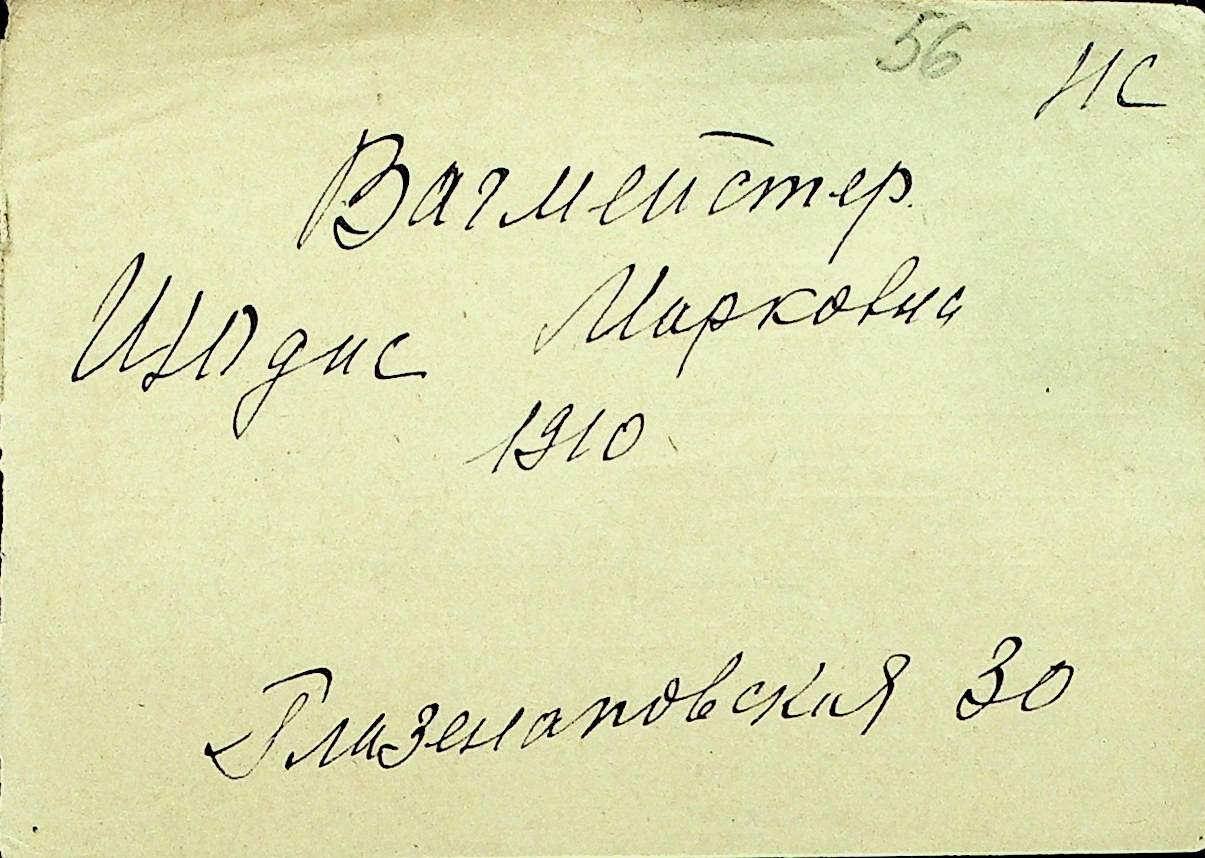 56 НС
Вагмейстер
Июдис Марковна
1910
Глазенаповская 30